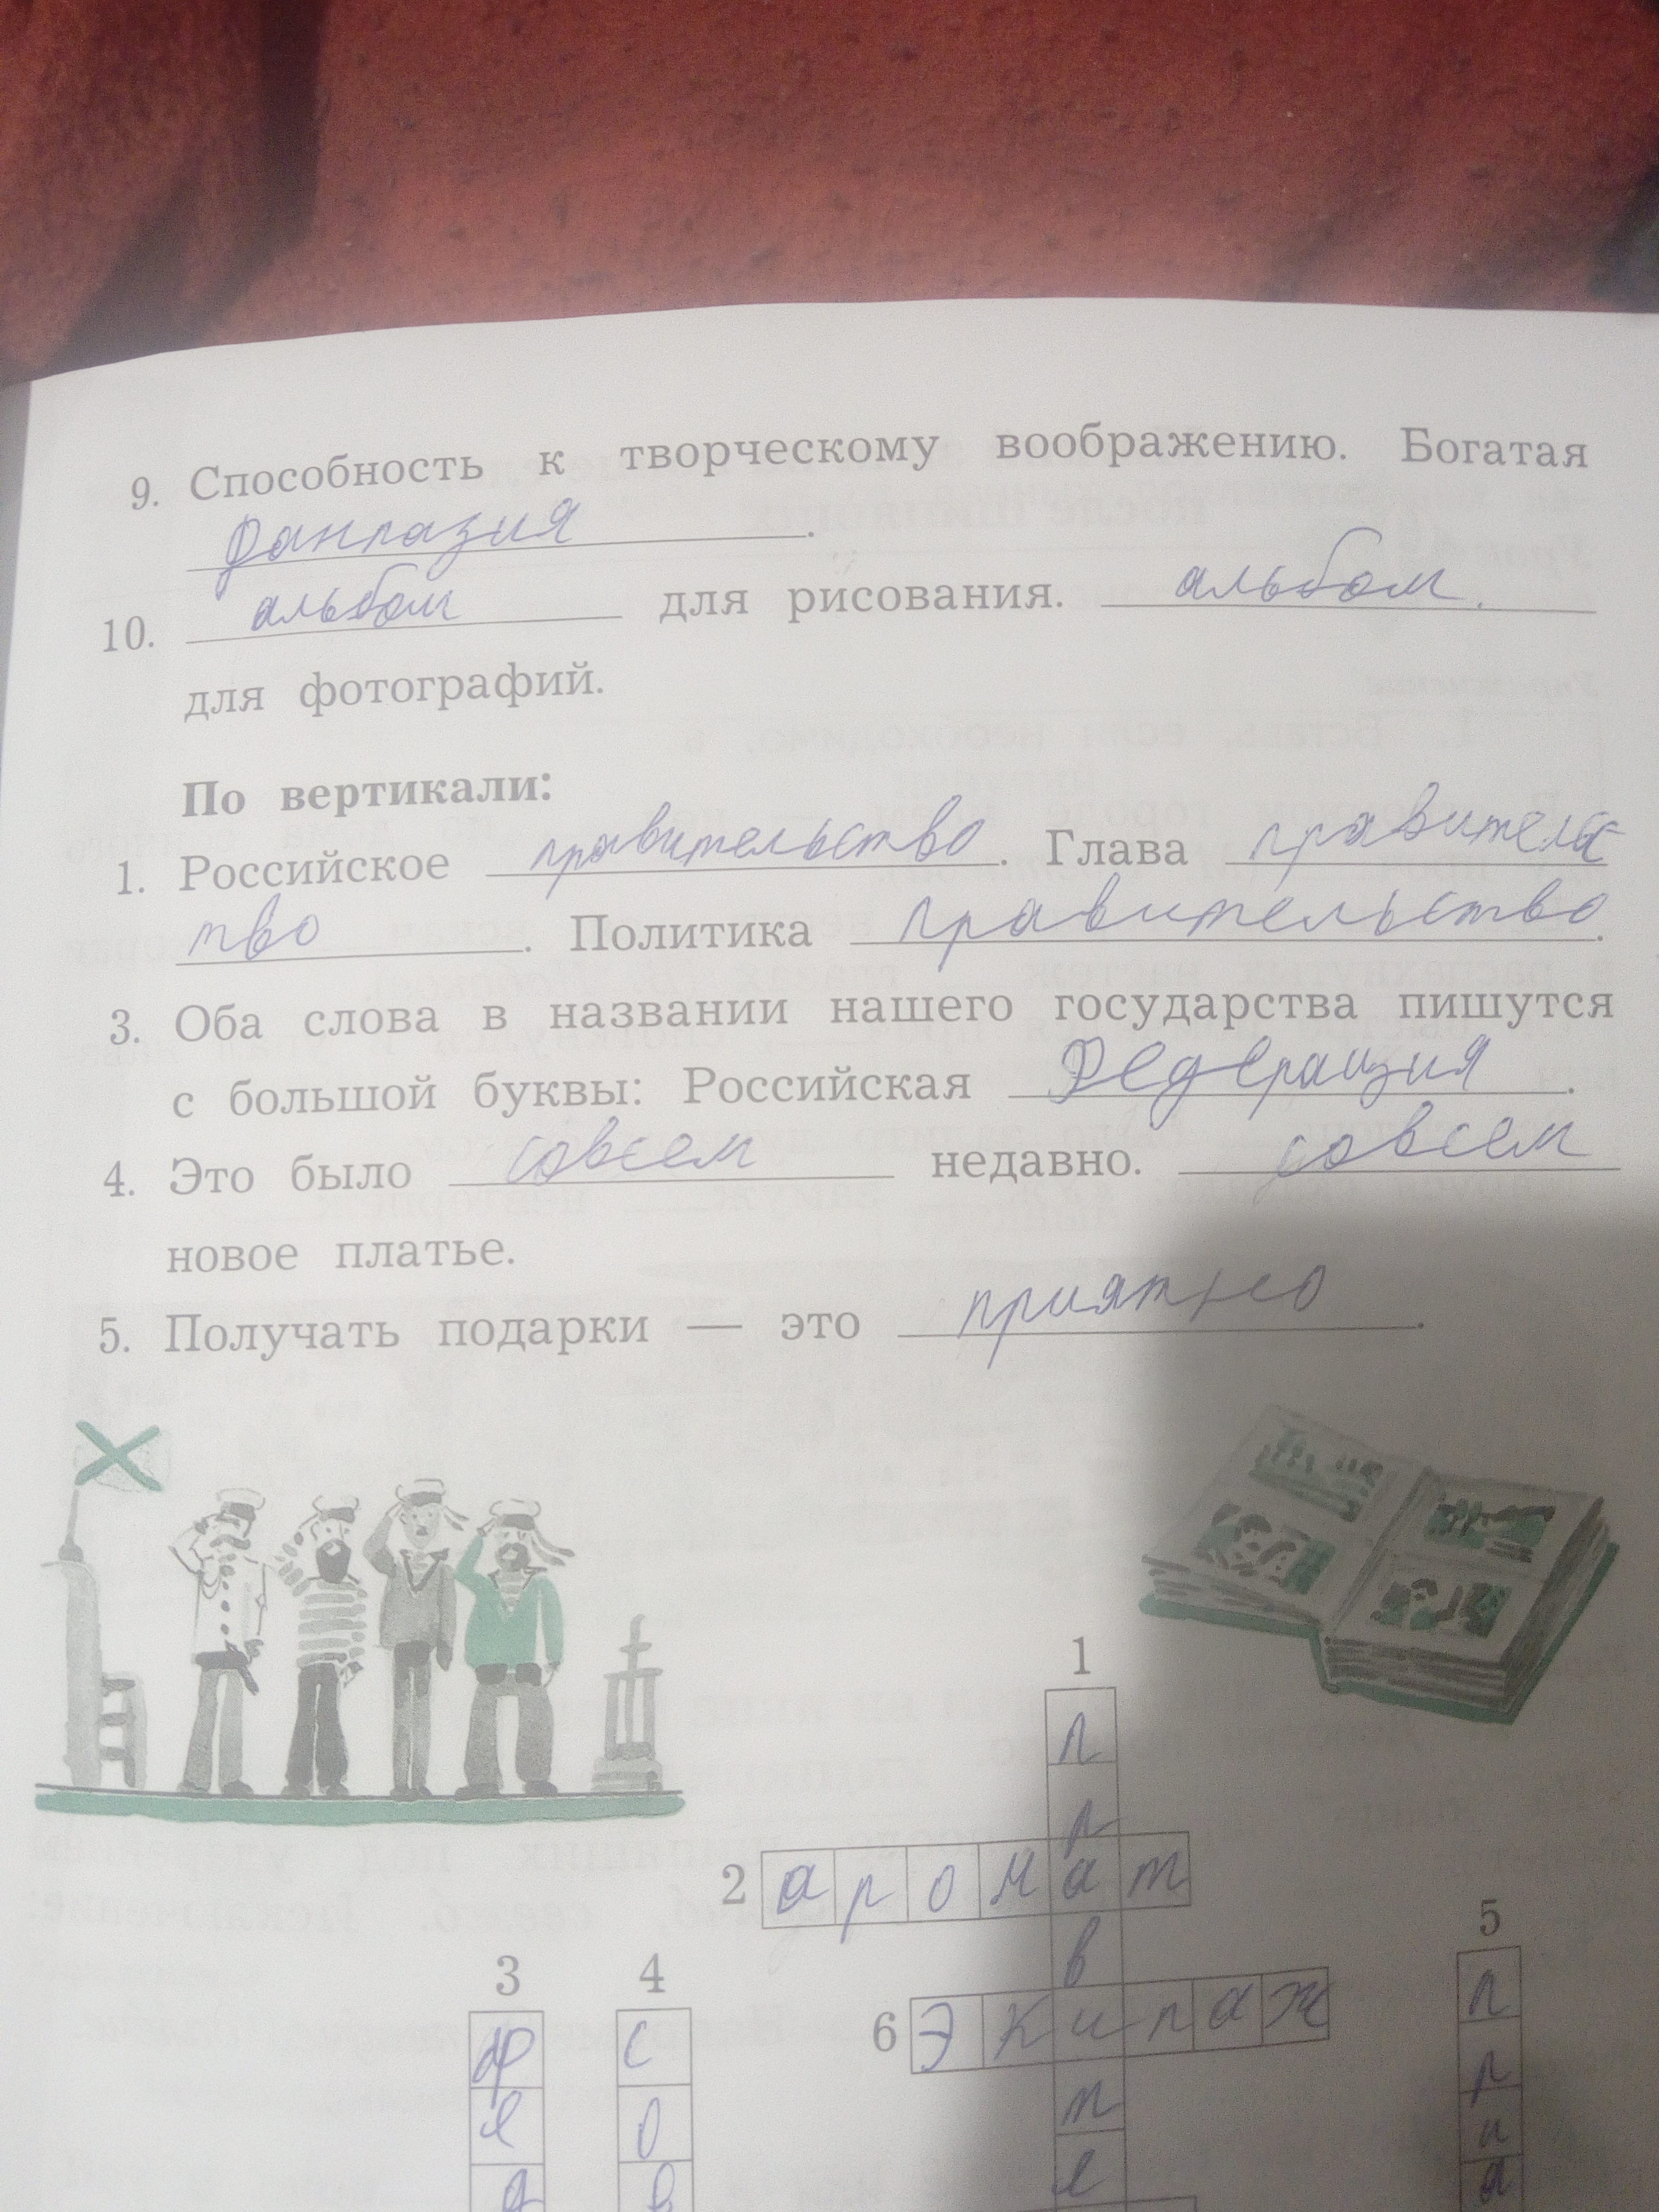 9. Способность к творческому воображению. Богатая
фантазия.
10. альбом для рисования. альбом.
для фотографий.
По вертикали:
1. Российское правительство. Глава правительс
тво. Политика правительство.
3. Оба слова в названии нашего государства пишутся
с большой буквы: Российская Федерация.
4. Это было совсем недавно. совсем
новое платье.
5. Получать подарки — это приятно.
1
п
р
2 аромат
в
5
3 4
6 экипаж
п
ф с
т
р
е о
и
е
я
д в